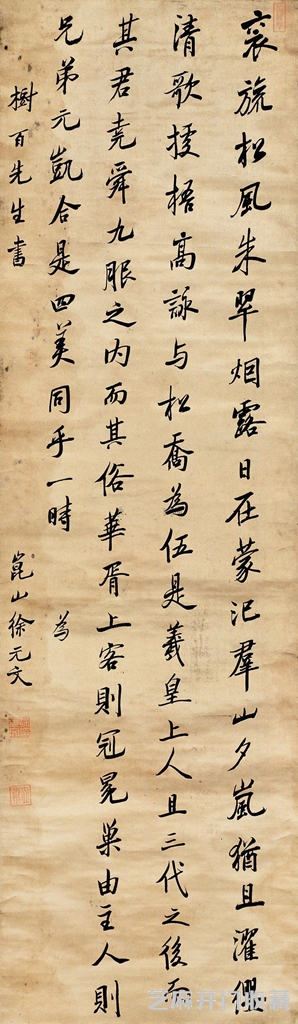 袞旒松風朱翠烟露日在蒙汜羣山夕嵐猶且濯纓
清歌據梧高詠与松喬為伍是羲皇上人且三代之後而
其君堯舜九服之内而其俗華胥上客則冠冕巢由主人則
兄弟元凱合是四美同乎一時 為
樹百先生書 崑山徐元文
芝麻开门收藏